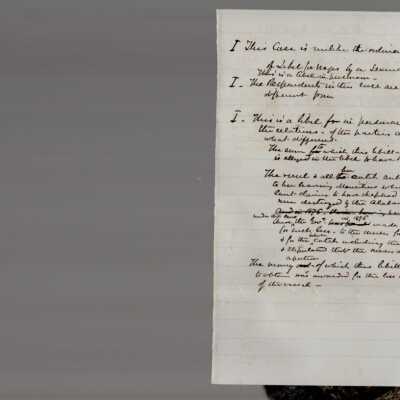 I This Case is unlike the ordinar
of Libel for Wages by a Seam
This is a libel in personam -
I - The Respondents in this case are
different from
I - This is a libel for in personam
the relations - of the parties a
what different.
The sum for which this libell
is alleged in the libel to have b
The vessel & all the catch
to her having
were destroyed by the Alabam
for such loss - to the owners for
& for the Catch including the
& stipulated that the
The money of which this libell
to obtain was awarded for the loss
of the vessel -